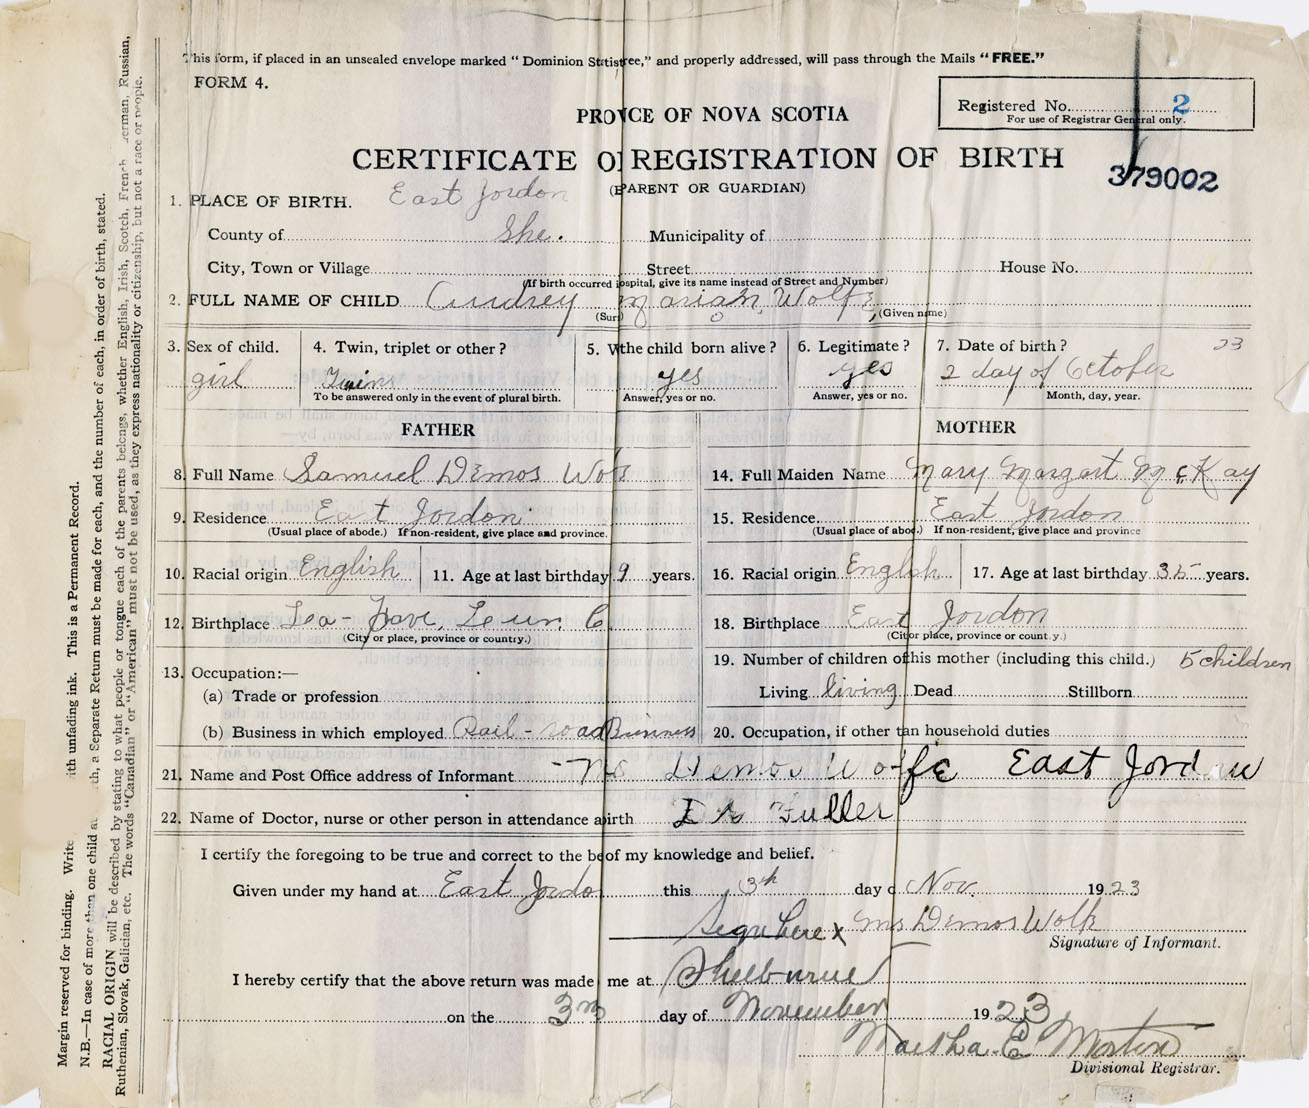 This form, if placed in an unsealed envelope marked "Dominion Statistree," and properly addressed, will pass through the Mails "FREE."
FORM 4.
Registered No. 2
For use of Registrar General only.
PROVCE OF NOVA SCOTIA
CERTIFICATE O REGISTRATION OF BIRTH
379002
(PARENT OR GUARDIAN)
1. PLACE OF BIRTH. East Jordon
County of She. Municipality of
City, Town or Village Street House No.
(If birth occurred ispital, give its name instead of Street and Number)
2. FULL NAME OF CHILD Audrey Marian Wolfe
(Sur) (Given name)
3. Sex of child. 4. Twin, triplet or other? 5. Wthe child born alive? 6. Legitimate? 7. Date of birth? 23
girl Twins yes yes 2 day of October
To be answered only in the event of plural birth. Answer, yes or no. Answer, yes or no. Month, day, year.
FATHER MOTHER
8. Full Name Samuel Demos Wolf 14. Full Maiden Name Mary Margart McKay
9. Residence East Jordon 15. Residence East Jordon
(Usual place of abode.) If non-resident, give place and province. (Usual place of abode.) If non-resident, give place and province
10. Racial origin English 11. Age at last birthday 9 years. 16. Racial origin English 17. Age at last birthday 35 years.
12. Birthplace Lun C 18. Birthplace East Jordon
(City or place, province or country.) (City or place, province or country.)
13. Occupation:— 19. Number of children of this mother (including this child.) 5 children
(a) Trade or profession Living living Dead Stillborn
(b) Business in which employed Rail-road Business 20. Occupation, if other tan household duties
21. Name and Post Office address of Informant Demos Wolfe East Jord
22. Name of Doctor, nurse or other person in attendance a birth Dr Fuller
I certify the foregoing to be true and correct to the be of my knowledge and belief.
Given under my hand at East Jordo this 3th day o Nov. 1923
Sign here x Mrs Demos Wolfe
Signature of Informant.
I hereby certify that the above return was made me at Shelburne
on the 3rd day of November 1923
Martha E Morton
Divisional Registrar.
Margin reserved for binding. Write ith unfading ink. This is a Permanent Record.
N.B.—In case of more than one child a th, a Separate Return must be made for each, and the number of each, in order of birth, stated.
RACIAL ORIGIN will be described by stating to what people or tongue each of the parents belongs, whether English, Irish, Scotch, French erman, Russian,
Ruthenian, Slovak, Galician, etc. The words "Canadian" or "American" must not be used, as they express nationality or citizenship, but not a race or people.